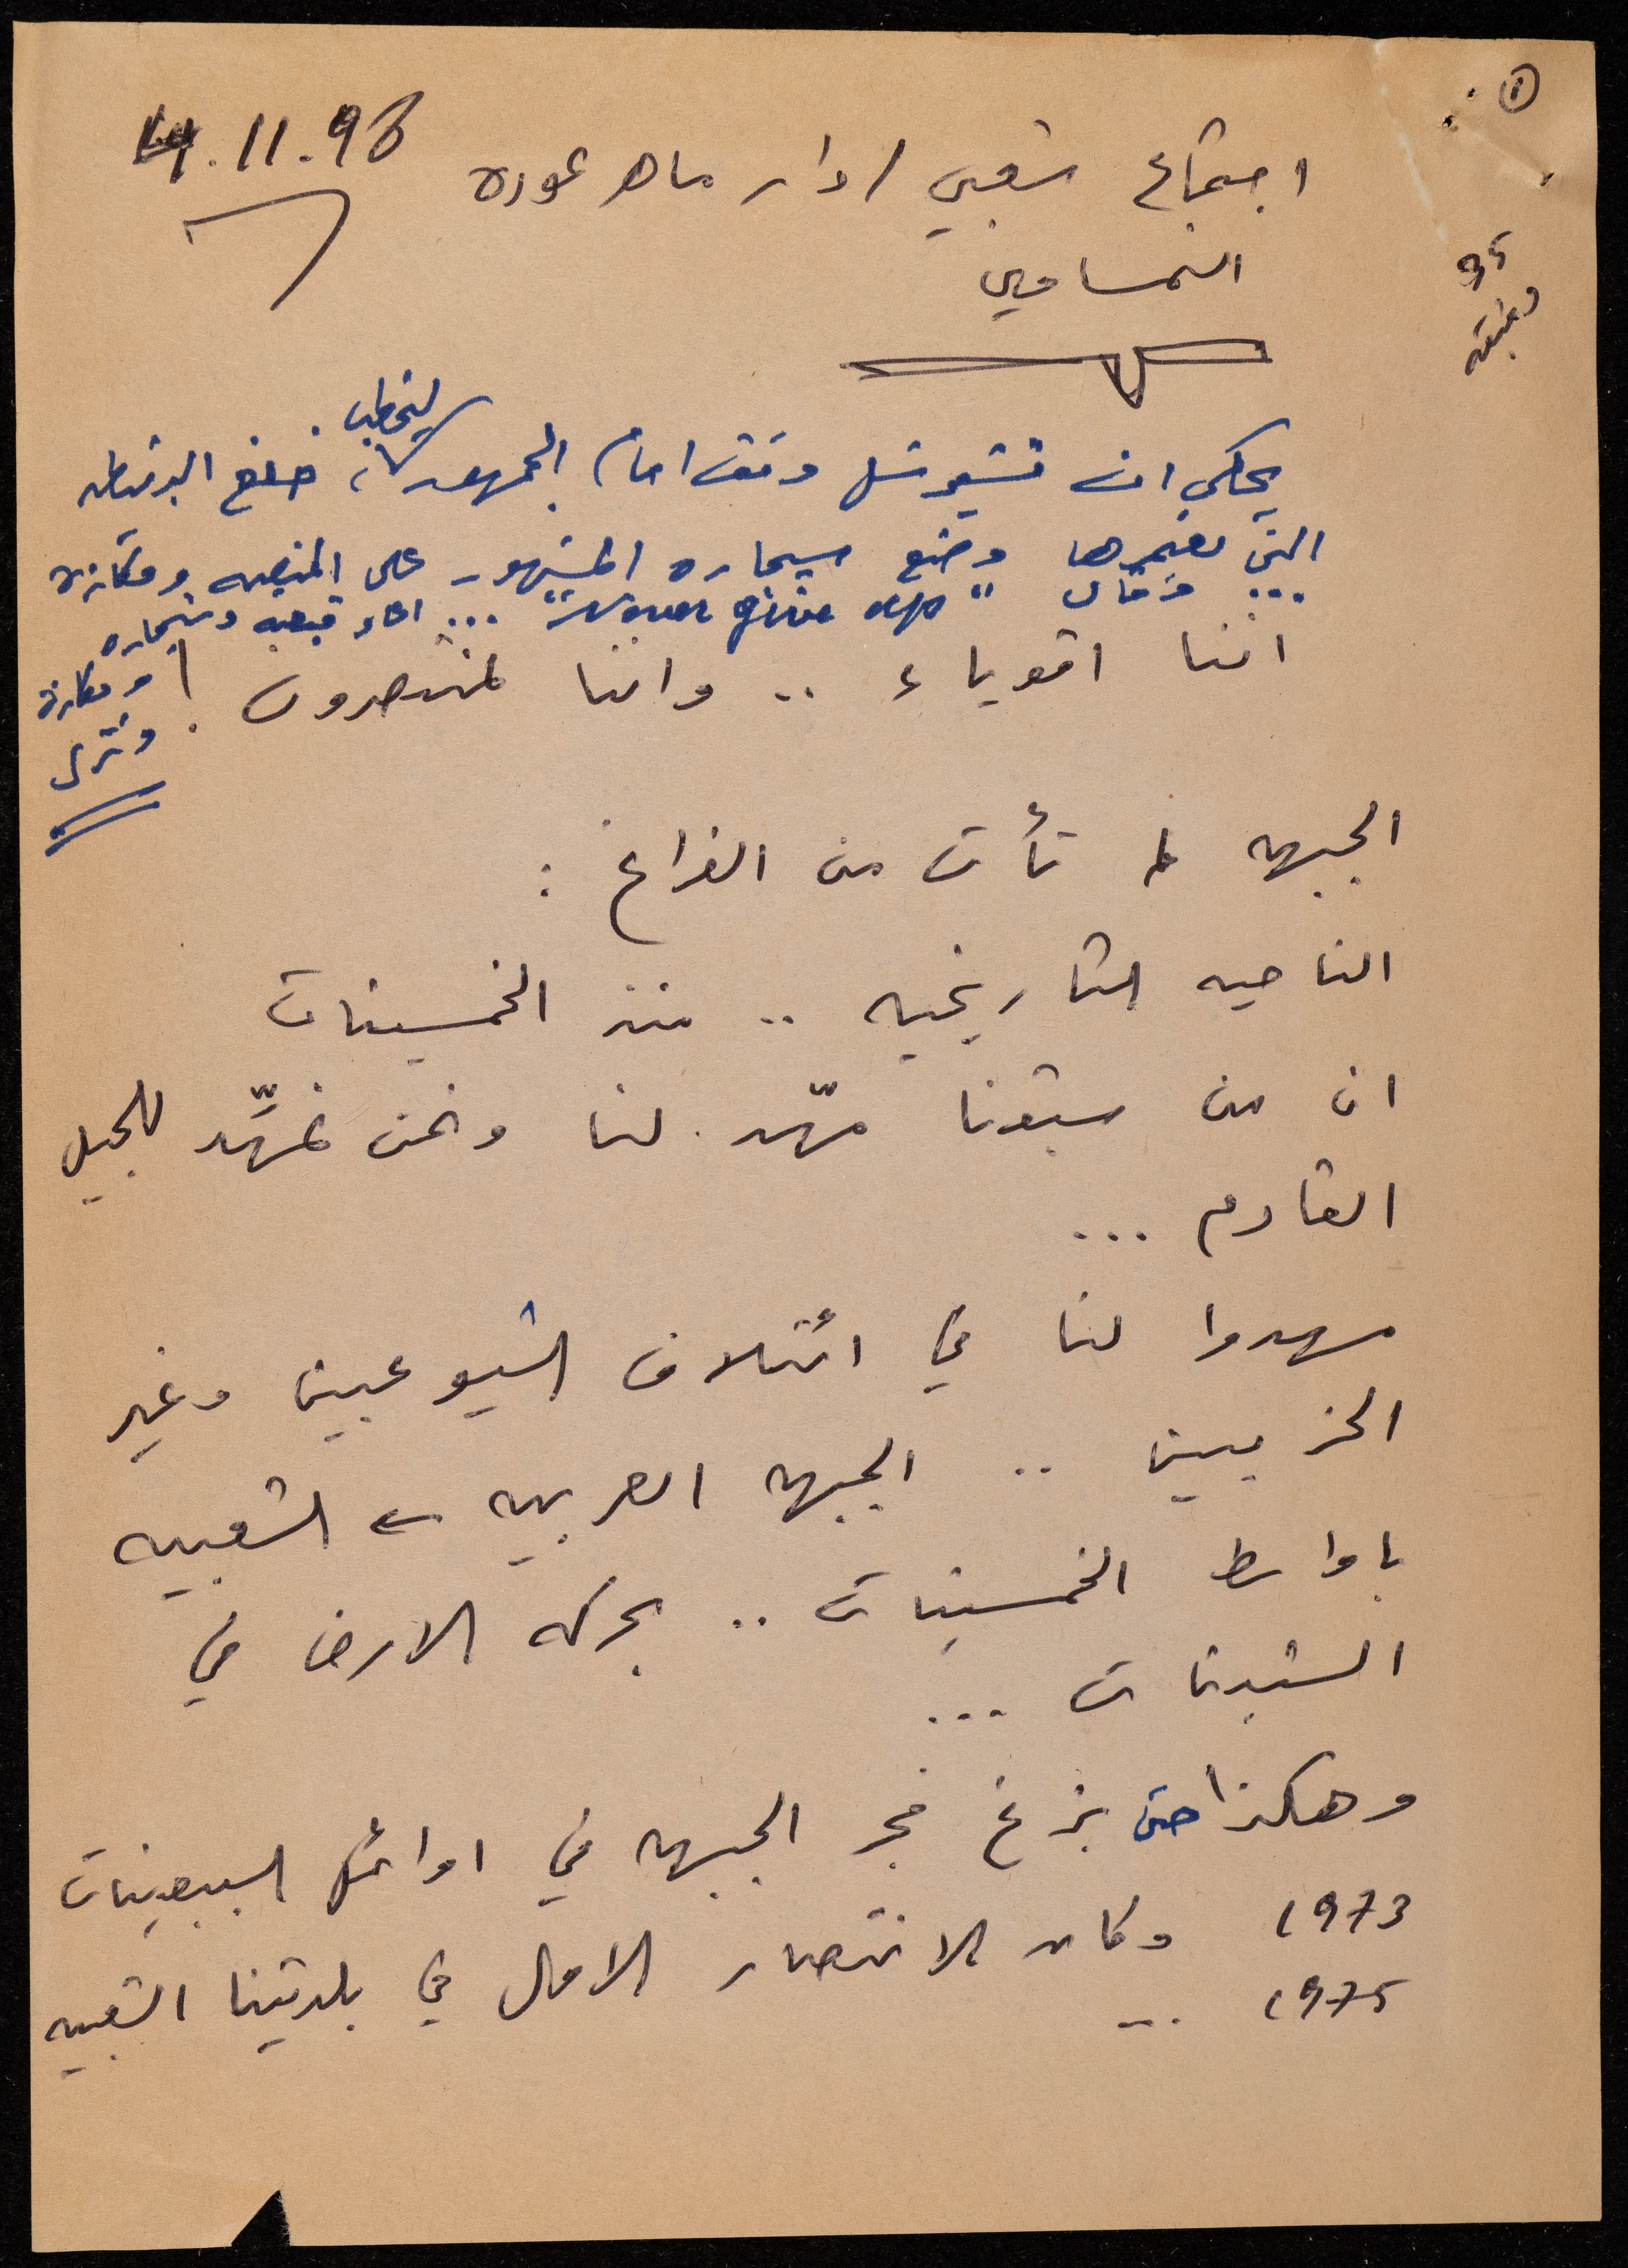 ①
4.11.98
اجتماع شعبي / دار ماهر عوده
النمساوي
95
دقيقه
يحكى ان تشيرتشل وقف امام الجمهور، ليخطب خلع البرنيطه
التي يعتمرها وضع سيجاره المشهور على المنصه وعكازته
... وقال "Never give up" ... اخذ قبعته وسيجاره
وعكازته
ونزل
اننا اقوياء .. واننا لمنتصرون!
الجبهه لم تأت من الفراغ :
الناحيه التاريخيه .. منذ الخمسينات
ان من سبقونا مهّد لنا ونحن نمهّد للجيل
القادم ...
مهدوا لنا في ائتلاف الشيوعيين وغير
الحزبيين .. الجبهه العربيه ← الشعبيه
باواسط الخمسينات .. بحركه الارض في
الستينات ...
وهكذا حتى بزغ فجر الجبهه في اوائل السبعينات
1973 وكان الانتصار الاول في بلديتنا الشعبيه
1975 ...